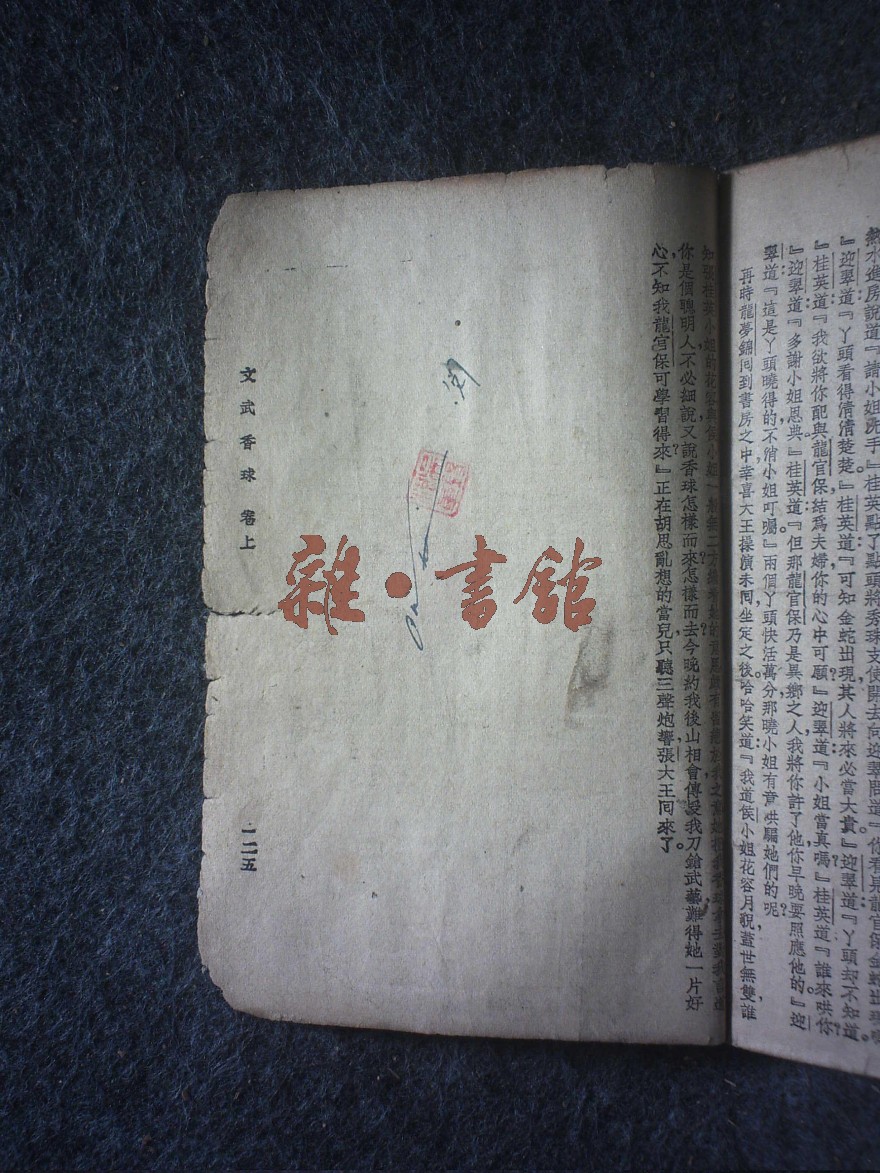 熱水進房說道『請小姐洗手』桂英點了點頭將秀珠支使開去向迎翠問道『你看見龍官保金蛇出現
『迎翠道『丫頭看得清清楚楚』桂英道『可知金蛇出現其人將來必當大貴』迎翠道『丫頭却不知道
『桂英道『我欲將你配與龍官保結爲夫婦你的心中可願』迎翠道『小姐當真嗎』桂英道『誰來哄你
『迎翠道『多謝小姐恩典』桂英道『但那龍官保乃是異鄉之人我將你許了他你早晚要照應他的』迎
翠道『這是丫頭曉得的不消小姐叮囑』兩個丫頭快活萬分那曉小姐有意哄騙她們的呢
再時龍夢錦囘到書房之中幸喜大王操演未囘坐定之後哈哈笑道『我道侯小姐花容月貌蓋世無雙誰
知張桂英小姐的花容與侯小姐一般無二
你是個聰明人不必細說又說香球怎樣而來怎樣而去今晚約我後山相會傳授我刀鎗武藝難得她一片好
心不知我龍官保可學習得來』正在胡思亂想的當兒只聽三聲炮響張大王囘來了
文武香球 卷上
一二五
雜·書館